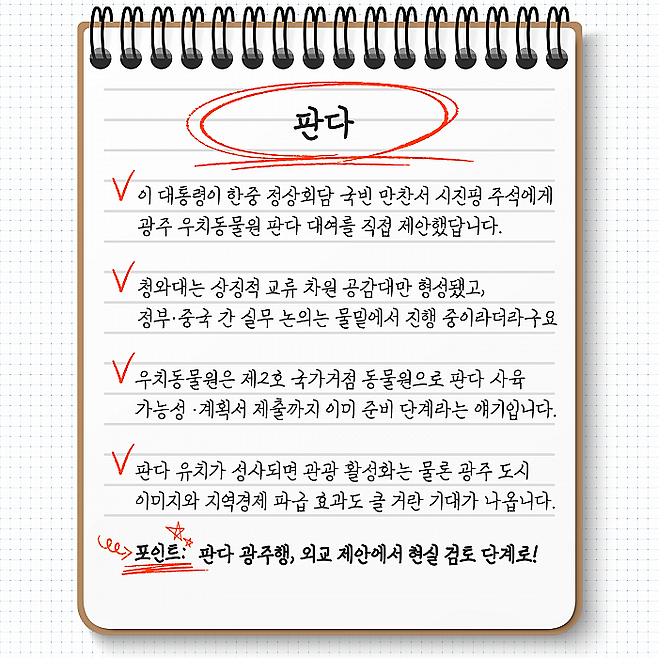 판다
이 대통령이 한중 정상회담 국빈 만찬서 시진핑 주석에게
광주 우치동물원 판다 대여를 직접 제안했답니다.
청와대는 상징적 교류 차원 공감대만 형성됐고,
정부·중국 간 실무 논의는 물밑에서 진행 중이라더라구요
우치동물원은 제2호 국가거점 동물원으로 판다 사육
가능성 ·계획서 제출까지 이미 준비 단계라는 얘기입니다.
판다 유치가 성사되면 관광 활성화는 물론 광주 도시
이미지와 지역경제 파급 효과도 클 거란 기대가 나옵니다.
포인트: 판다 광주행, 외교 제안에서 현실 검토 단계로!